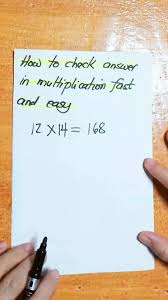 How to check answer
in multiplication fast
and easy
12 x 14 = 168